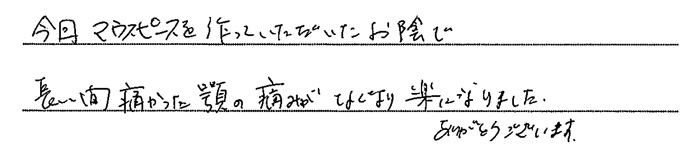 今回マウスピースを作っていただいたお陰で
長い間痛かった顎の痛みがなくなり楽になりました.
ありがとうございます.